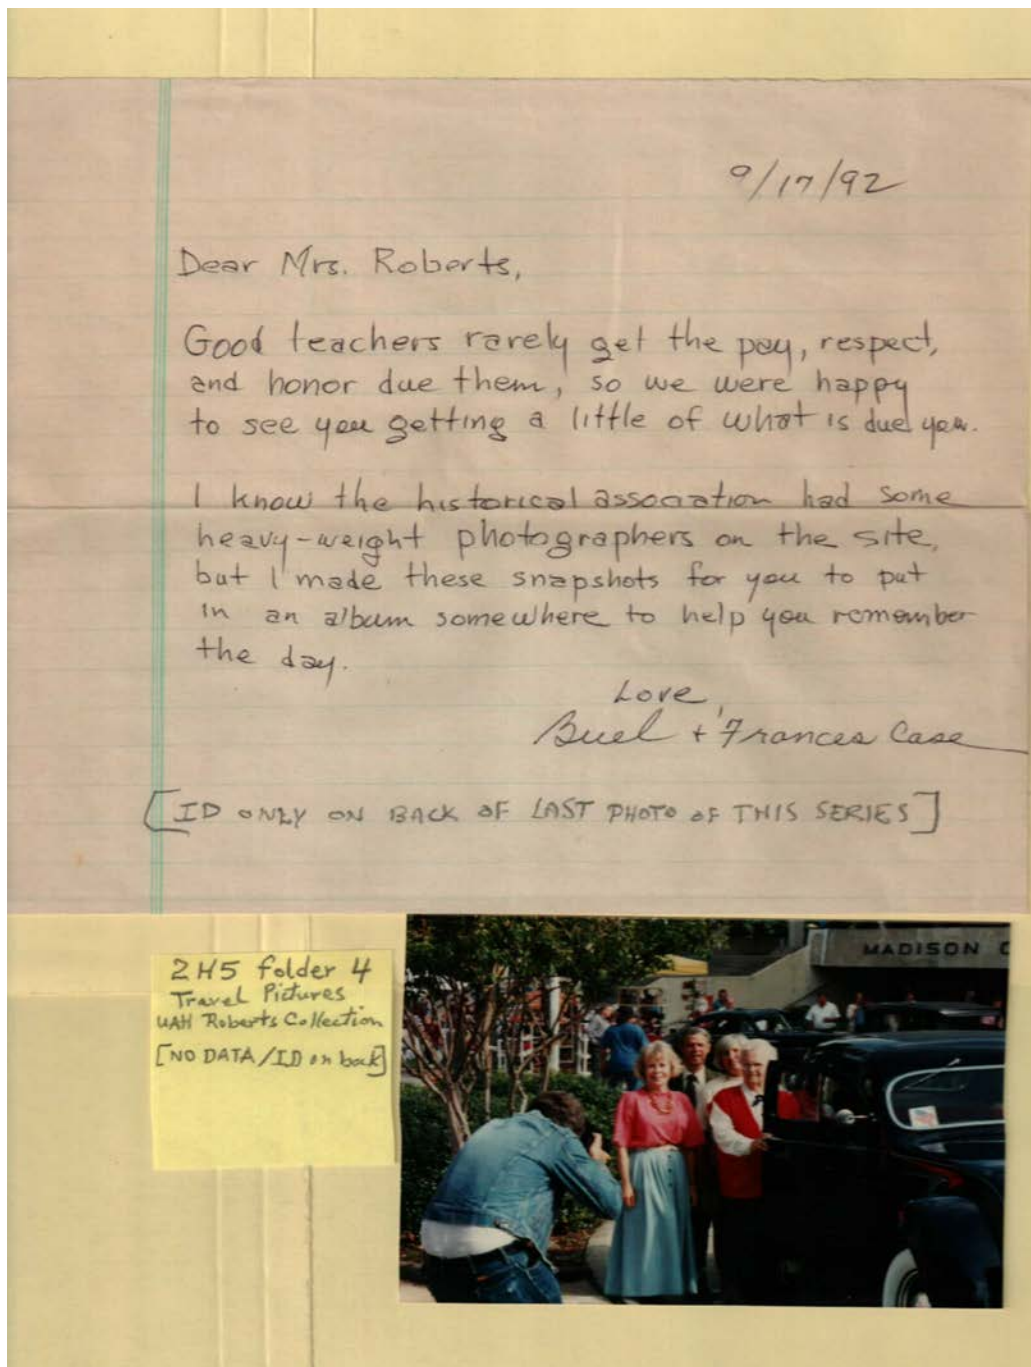 9/17/92
Dear Mrs. Roberts,
Good teachers rarely get the pay, respect,
and honor due them, so we were happy
to see you getting a little of what is due you.
I know the historical association had some
heavy-weight photographers on the site,
but I made these snapshots for you to put
in an album somewhere to help you remember
the day.
Love,
Buel + Frances Case
[ID ONLY ON BACK OF LAST PHOTO OF THIS SERIES]
2H5 folder 4
Travel Pictures
UAH Roberts Collection
[NO DATA/ID on back]
MADISON C